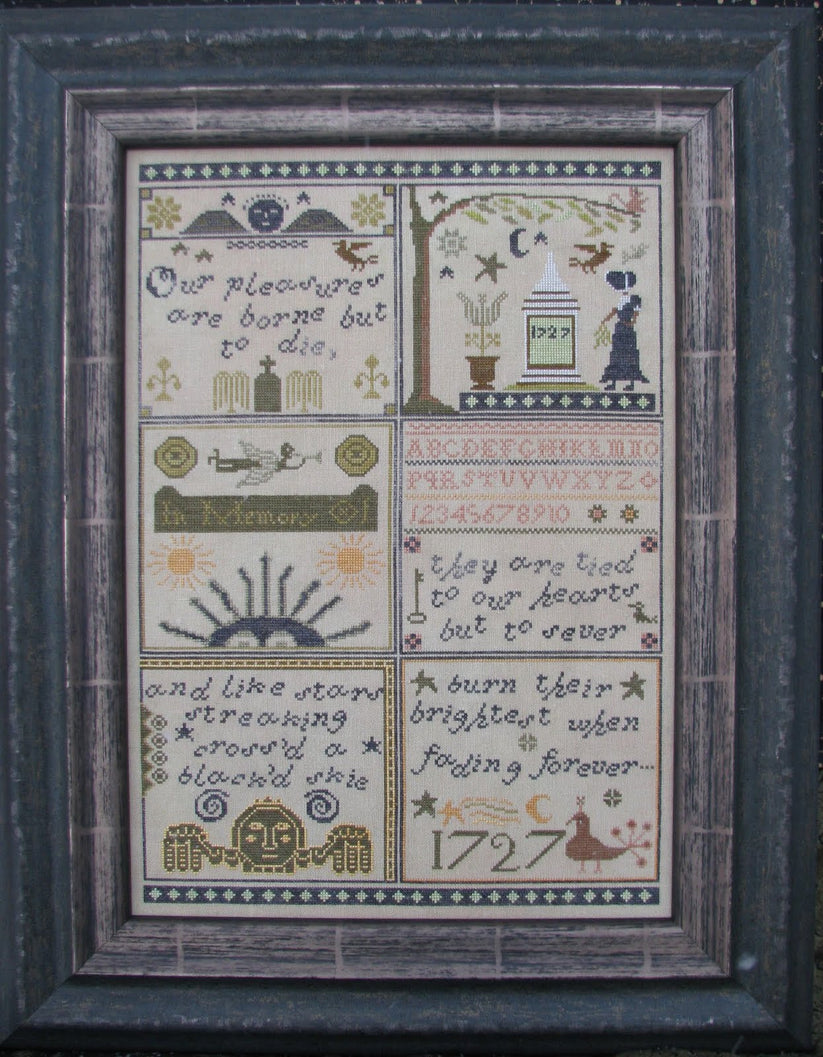 Our pleasures
are borne but
to die,
1727
In Memory Of
ABCDEFGHIKLMNO
PQRSTUVWXYZ
12345678910
they are tied
to our hearts
but to sever
and like stars
streaking
cross'd a
black'd skie
burn their
brightest when
fading forever...
1727